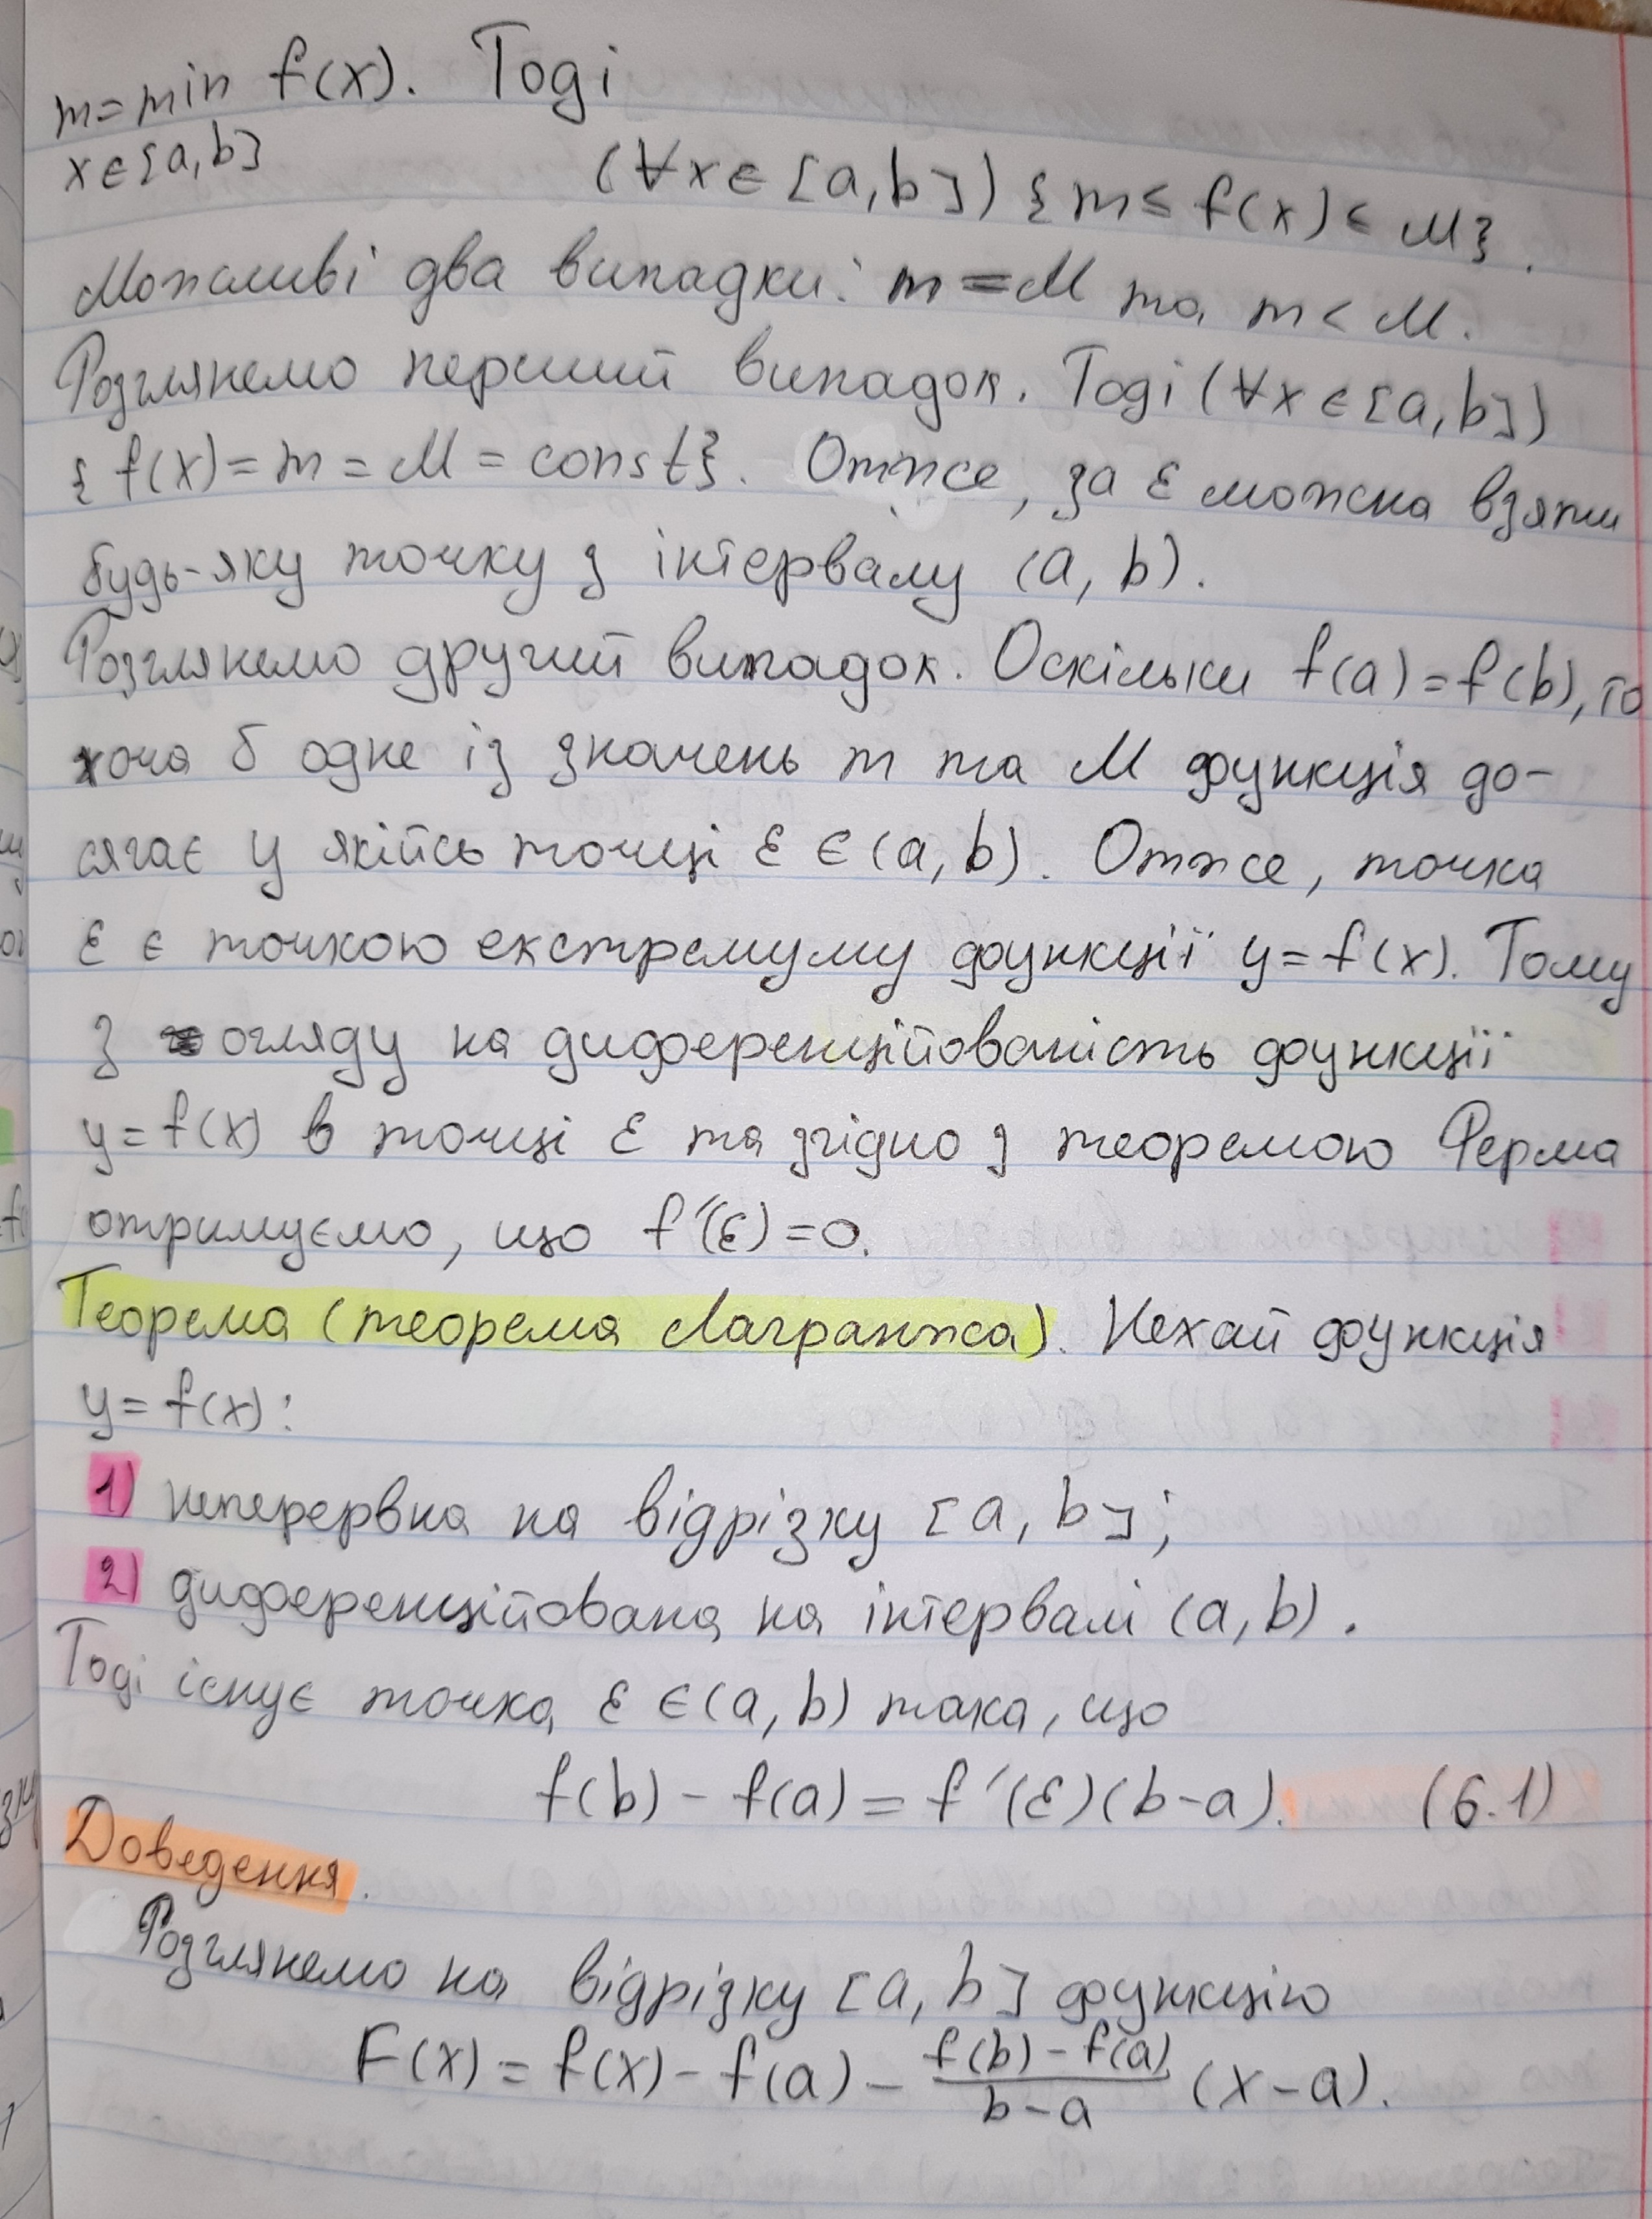 m = min f(x). Тоді
x∈[a,b]
(∀x∈[a,b]) {m ≤ f(x) ≤ M}.
Можливі два випадки: m = M та m < M.
Розглянемо перший випадок. Тоді (∀x∈[a,b])
{f(x) = m = M = const}. Отже, за ε можна взяти
будь-яку точку з інтервалу (a, b).
Розглянемо другий випадок. Оскільки f(a) = f(b), то
хоча б одне із значень m та M функція до-
сягає у якійсь точці ε ∈ (a, b). Отже, точка
ε є точкою екстремуму функції y = f(x). Тому
з огляду на диференційованість функції
y = f(x) в точці ε та згідно з теоремою Ферма
отримуємо, що f′(ε) = 0.
Теорема (теорема Лагранжа). Нехай функція
y = f(x):
1) неперервна на відрізку [a, b];
2) диференційована на інтервалі (a, b).
Тоді існує точка ε ∈ (a, b) така, що
f(b) - f(a) = f′(ε)(b - a). (6.1)
Доведення.
Розглянемо на відрізку [a, b] функцію
F(x) = f(x) - f(a) - \frac{f(b) - f(a)}{b - a} (x - a).